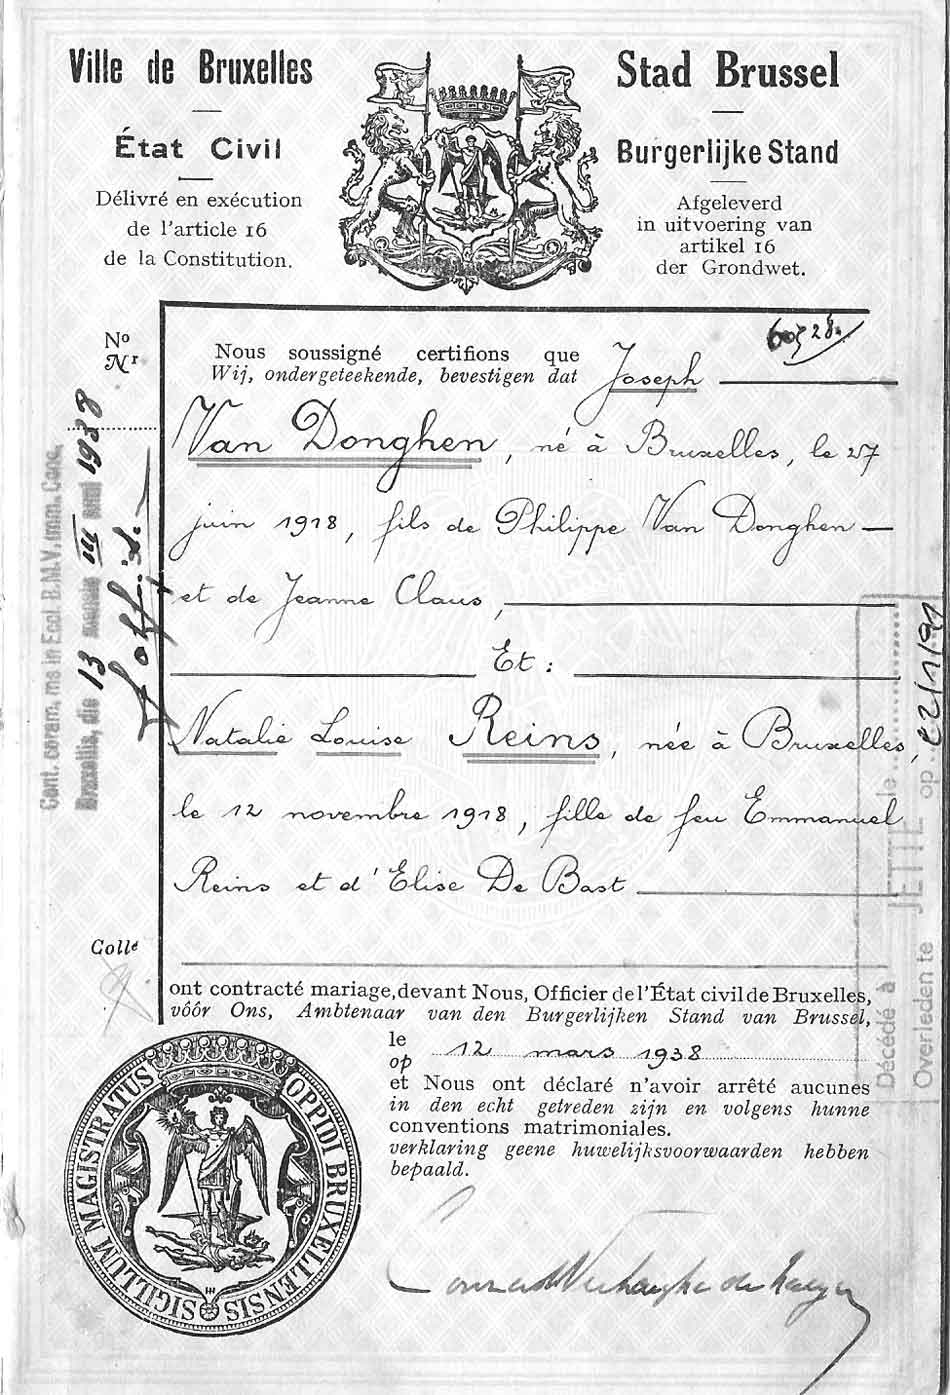 Ville de Bruxelles
État Civil
Délivré en exécution
de l'article 16
de la Constitution.
Stad Brussel
Burgerlijke Stand
Afgeleverd
in uitvoering van
artikel 16
der Grondwet.
Nº
Nr
Nous soussigné certifions que
Wij, ondergeteekende, bevestigen dat Joseph
Van Donghen, né à Bruxelles, le 27
juin 1918, fils de Philippe Van Donghen
et de Jeanne Claus,
Et :
Natalie Louise Reins, née à Bruxelles,
le 12 novembre 1918, fille de feu Emmanuel
Reins et d'Elise De Bast
Collé
ont contracté mariage, devant Nous, Officier de l'État civil de Bruxelles,
vóór Ons, Ambtenaar van den Burgerlijken Stand van Brussel,
le
op 12 mars 1938
et Nous ont déclaré n'avoir arrêté aucunes
in den echt getreden zijn en volgens hunne
conventions matrimoniales.
verklaring geene huwelijksvoorwaarden hebben
bepaald.
SIGILLUM MAGISTRATUS OPPIDI BRUXELLENSIS
Cont. coram. me in Eccl. B.M.V. Imm. Conc.
Bruxellis, die 13 mensis III anni 1938
Décédé à JETTE le
Overleden te op 22/1/91